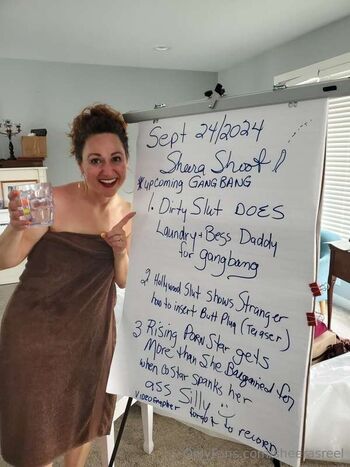 Sept 24/2024
Sheera Shoot!
upcoming GANGBANG
1. Dirty Slut DOES
Laundry + Begs Daddy
for gangbang
2 Hollywood Slut shows Stranger
how to insert Butt Plug (Teaser)
3 Rising Porn Star gets
More than She Bargained for
when co star spanks her
ass Silly
Videographer forgot to record
OnlyFans.com/sheerasreel